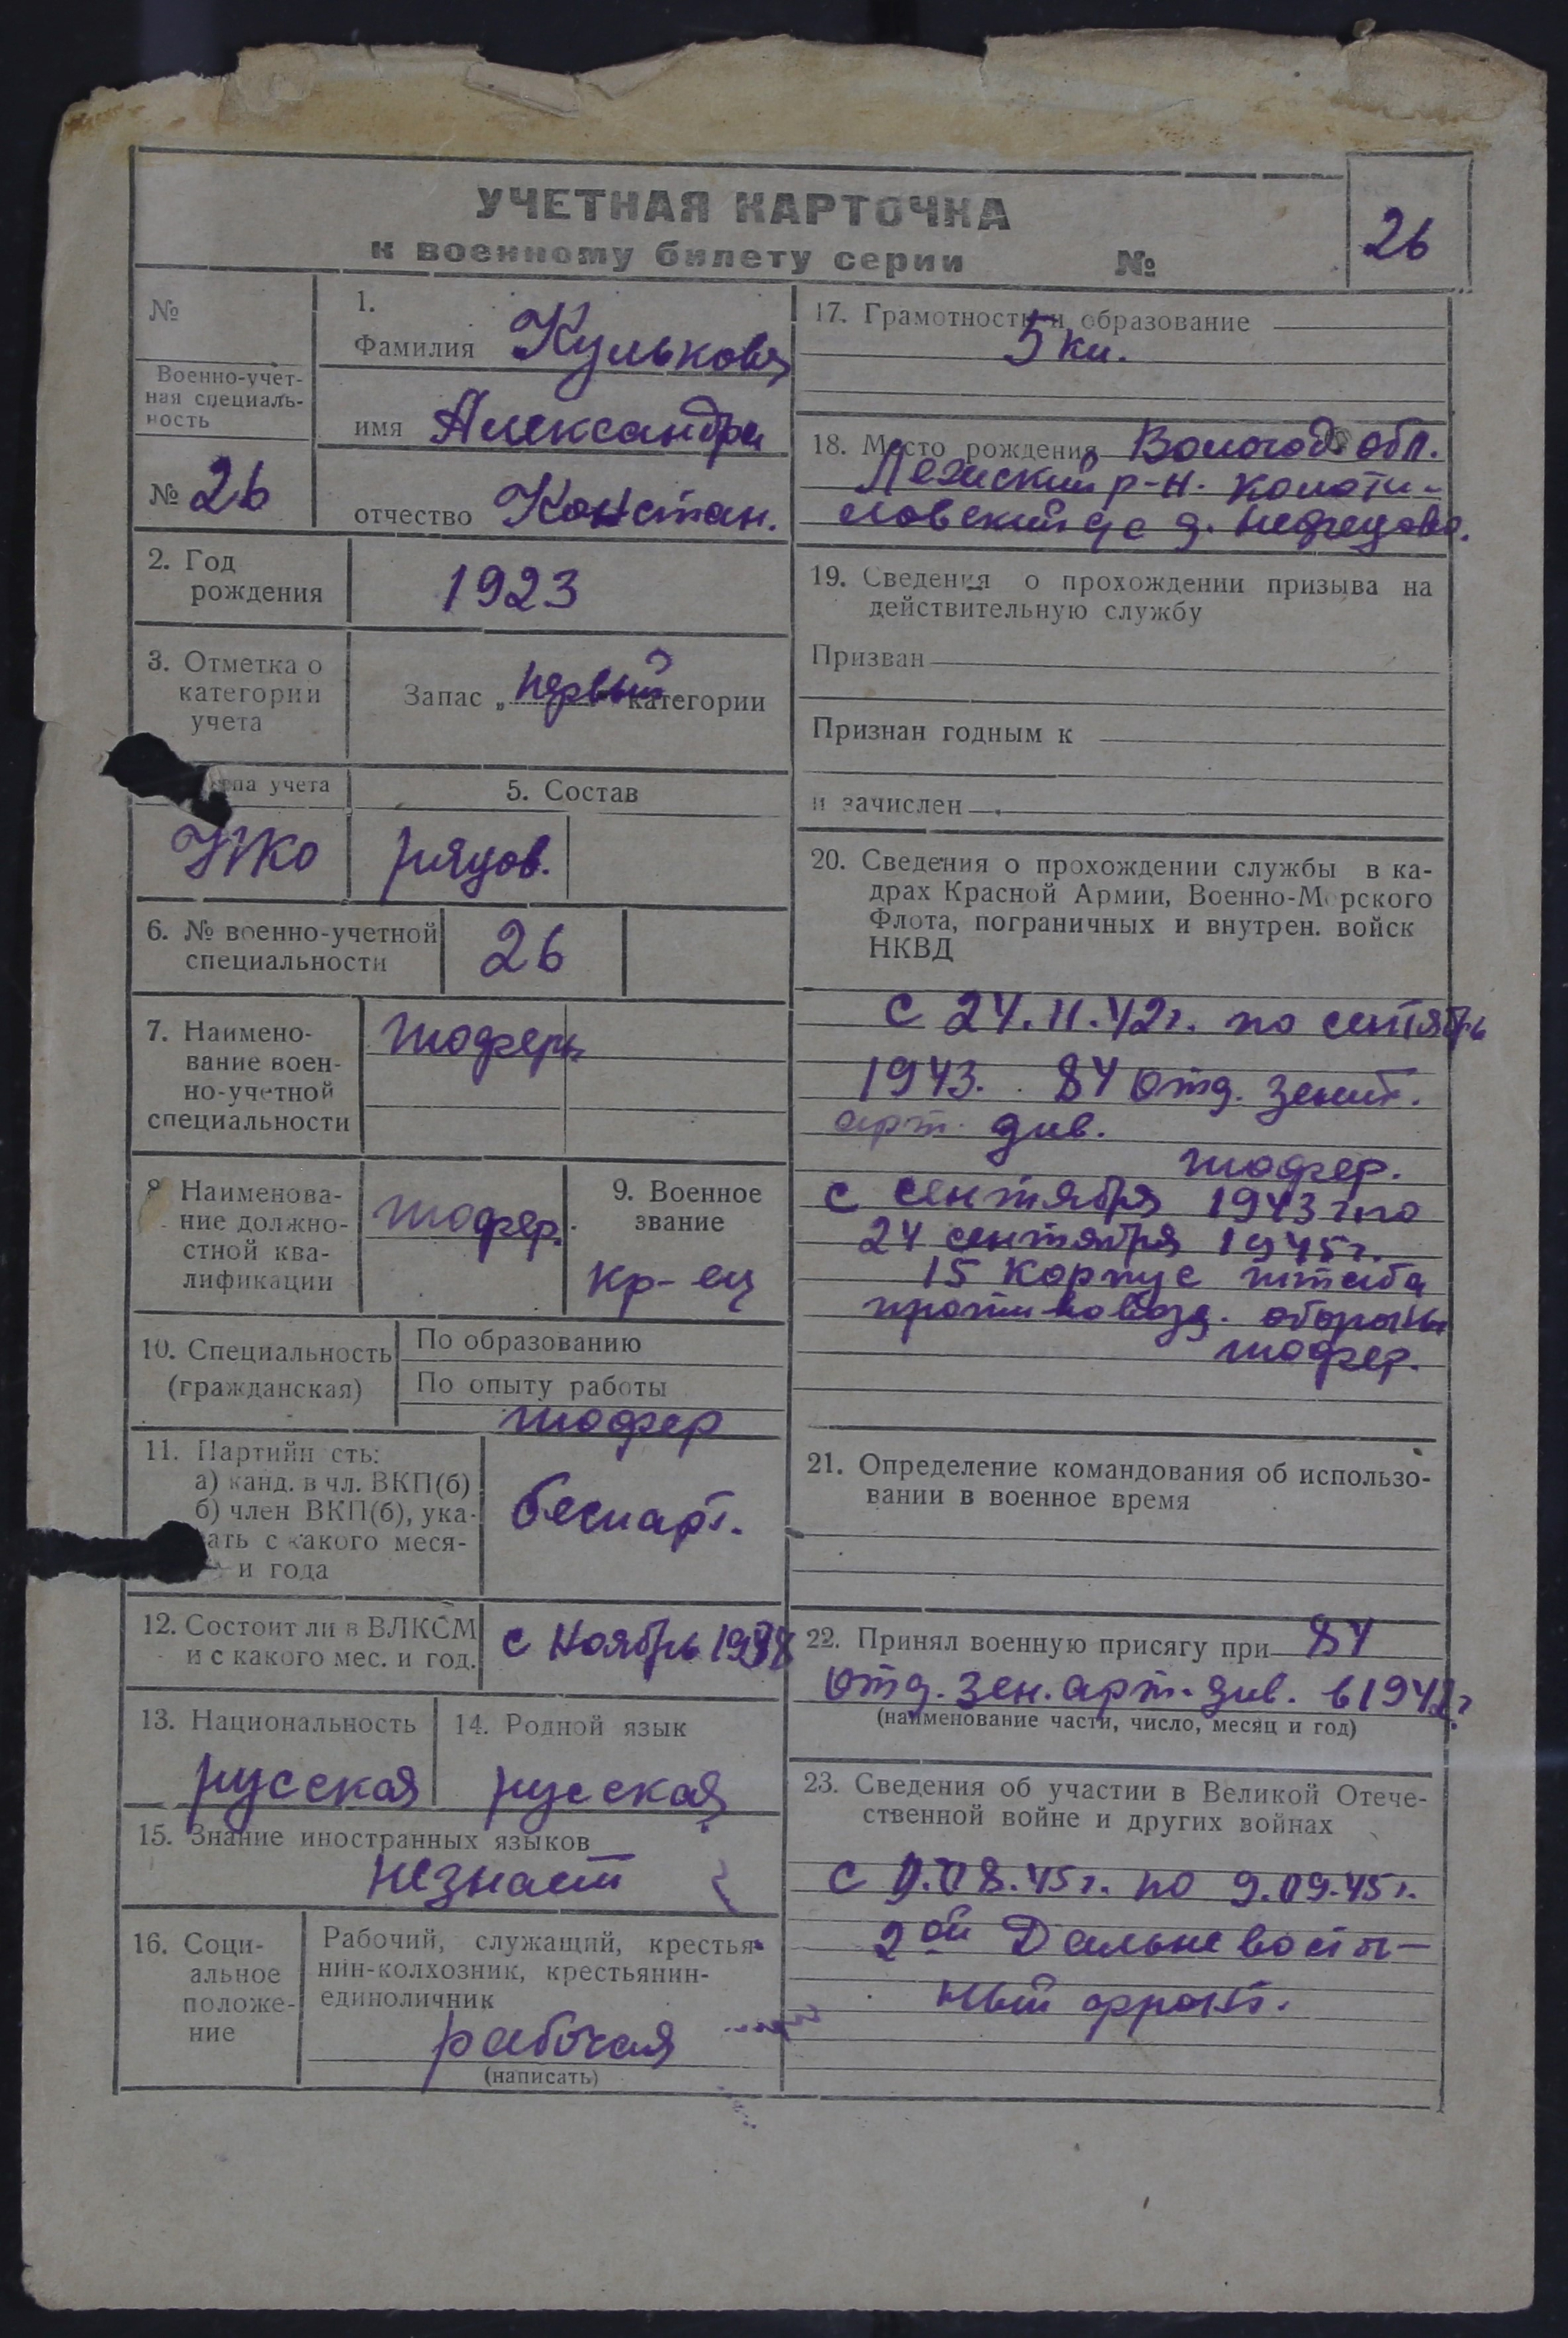 УЧЕТНАЯ КАРТОЧКА
к военному билету серии №
26
№
Военно-учет-
ная специаль-
ность
№ 26
1.
Фамилия Кулькова
имя Александра
отчество Констан.
2. Год
рождения
1923
3. Отметка о
категории
учета
Запас „первый категории
па учета
НКО
5. Состав
рядов.
6. № военно-учетной
специальности
26
7. Наимено-
вание воен-
но-учетной
специальности
шофер
Наименова-
ние должно-
стной ква-
лификации
шофер.
9. Военное
звание
кр-ец
10. Специальность
(гражданская)
По образованию
По опыту работы
шофер
11. Партийн сть:
а) канд. в чл. ВКП(б)
б) член ВКП(б), ука-
ать с какого меся-
и года
беспарт.
12. Состоит ли в ВЛКСМ
и с какого мес. и год.
с ноябрь
13. Национальность
русская
14. Родной язык
русская
15. Знание иностранных языков
незнает
16. Соци-
альное
положе-
ние
Рабочий, служащий, крестья-
нин-колхозник, крестьянин-
единоличник
рабочая
(написать)
17. Грамотность и образование
5 кл.
18. Место рождения Вологод обл.
р-н. Колоти-
ловский с/с д.
19. Сведения о прохождении призыва на
действительную службу
Призван
Признан годным к
и зачислен
20. Сведения о прохождении службы в ка-
драх Красной Армии, Военно-Морского
Флота, пограничных и внутрен. войск
НКВД
С 24.11.42г. по сентябрь
1943. 84 отд. зенит.
арт. див.
шофер.
с сентября 1943 г по
24 сентября 1945г.
15 корпус штаба
противовозд. обороны
шофер.
21. Определение командования об использо-
вании в военное время
22. Принял военную присягу при 84
отд. зен. арт. див. в 1942г
(наименование части, число, месяц и год)
23. Сведения об участии в Великой Отече-
ственной войне и других войнах
с 08.45г. по 9.09.45г.
2ой Дальневосточ-
ный фронт.